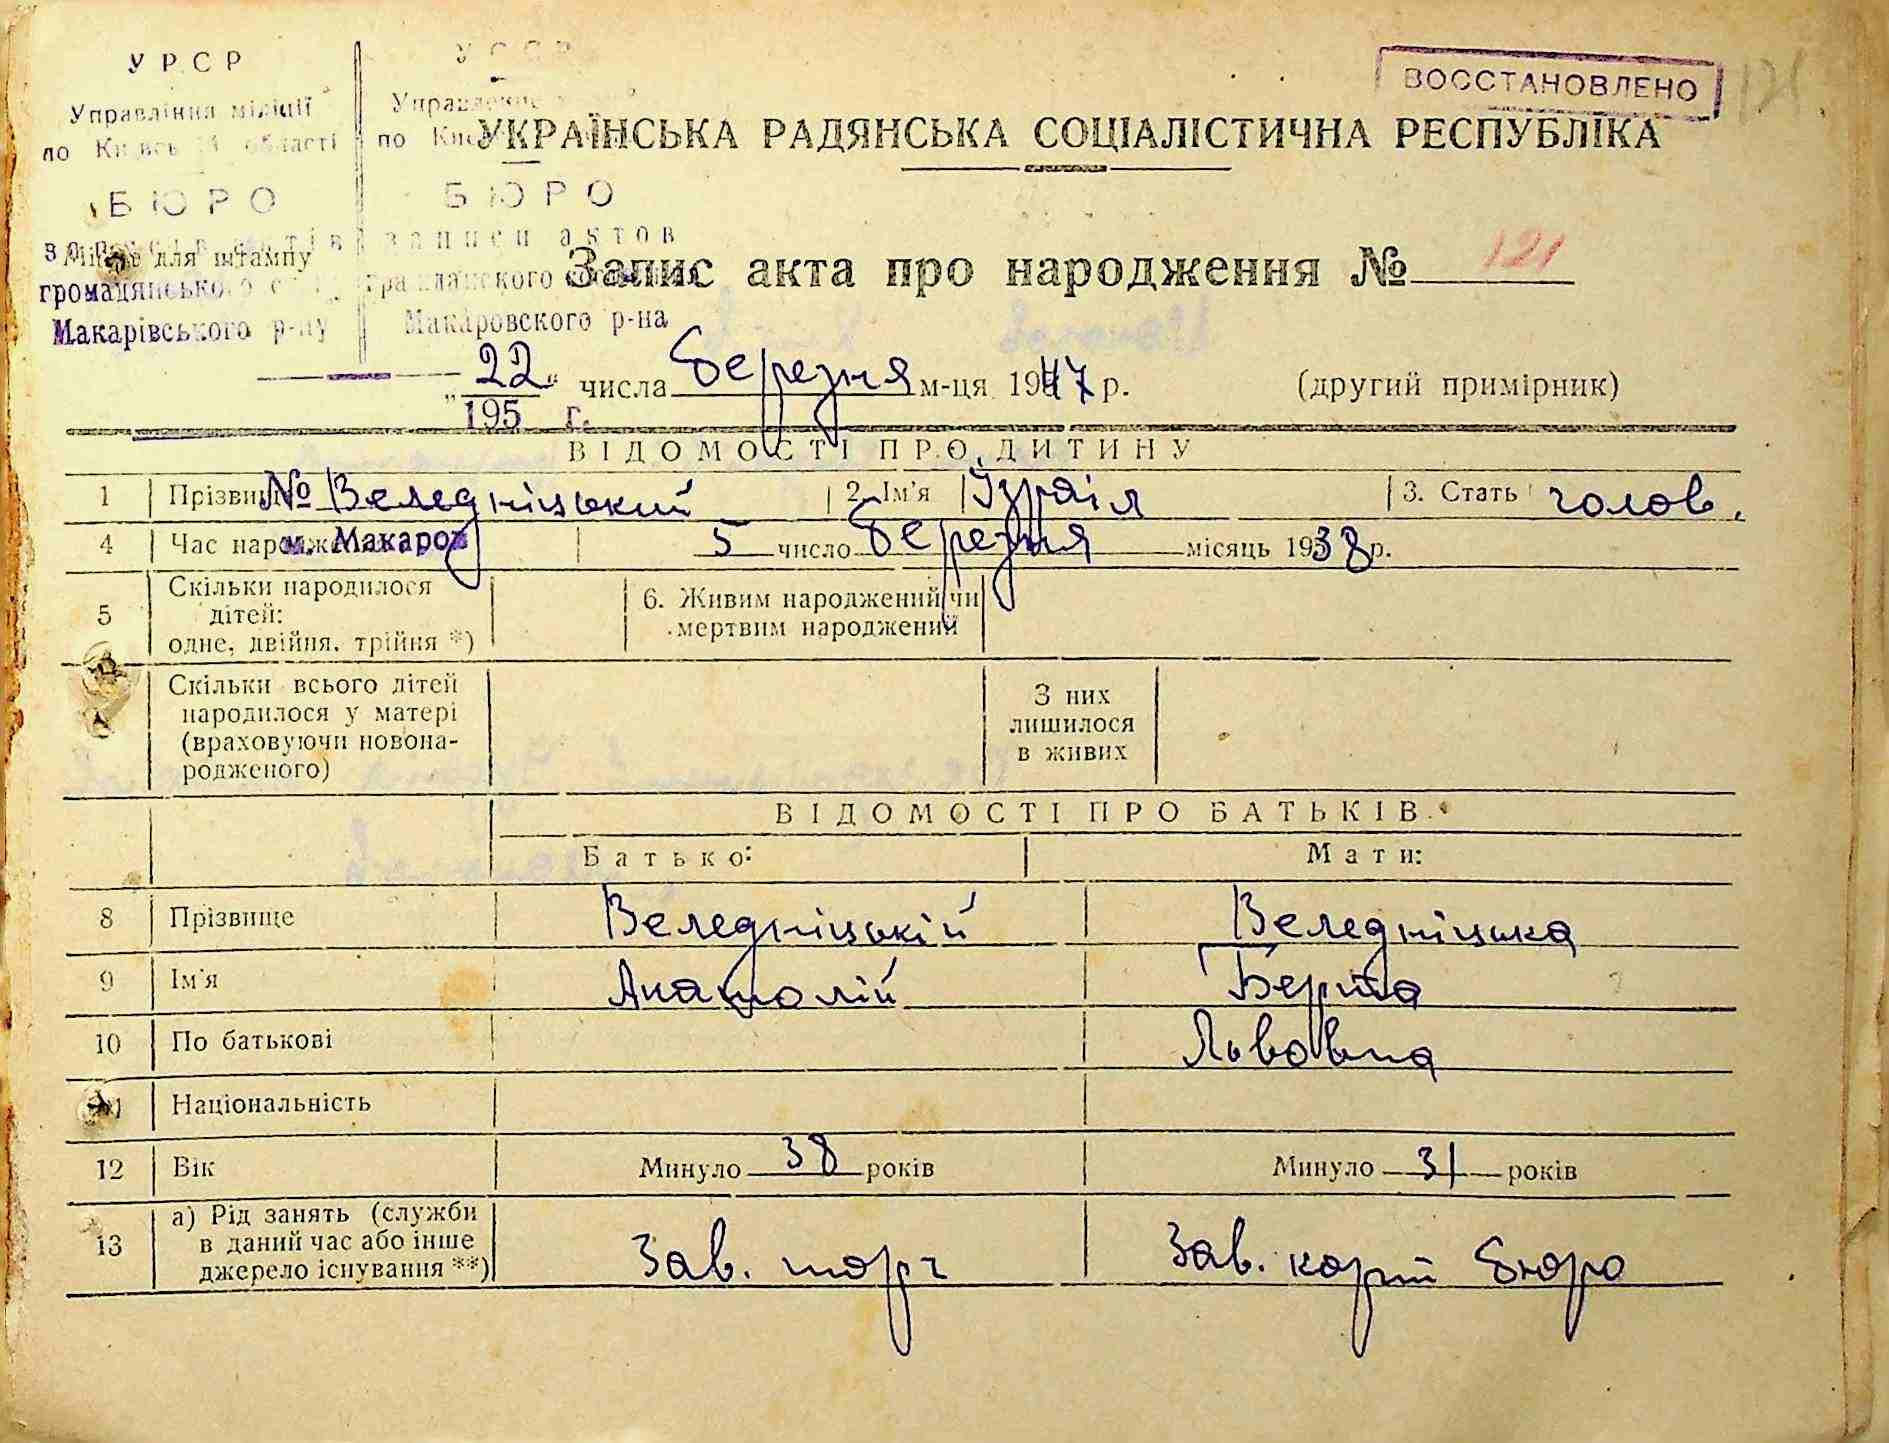 УРСР
Управління міліції
по Київській області
БЮРО
записів актів
громадянського
Макарівського р-ну
УССР
Управление
по
БЮРО
записи актов
гражданского
Макаровского р-на
195 г.
№
м. Макаров
ВОССТАНОВЛЕНО
121
УКРАЇНСЬКА РАДЯНСЬКА СОЦІАЛІСТИЧНА РЕСПУБЛІКА
Місце для штампу
Запис акта про народження № 121
„22“ числа березня м-ця 1947 р. (другий примірник)
ВІДОМОСТІ ПРО ДИТИНУ
1 Прізвище Веледніцький 2. Ім'я Ізраіл 3. Стать голов.
4 Час народження 5 число березня місяць 1938 р.
5 Скільки народилося дітей: одне, двійня, трійня *) 6. Живим народжений чи мертвим народжений
Скільки всього дітей народилося у матері (враховуючи новонародженого) З них лишилося в живих
ВІДОМОСТІ ПРО БАТЬКІВ
Батько: Мати:
8 Прізвище Веледніцькій Веледніцька
9 Ім'я Анатолій Берта
10 По батькові Львовна
11 Національність
12 Вік Минуло 38 років Минуло 31 років
13 а) Рід занять (служби в даний час або інше джерело існування **) Зав. торг Зав. карт бюро